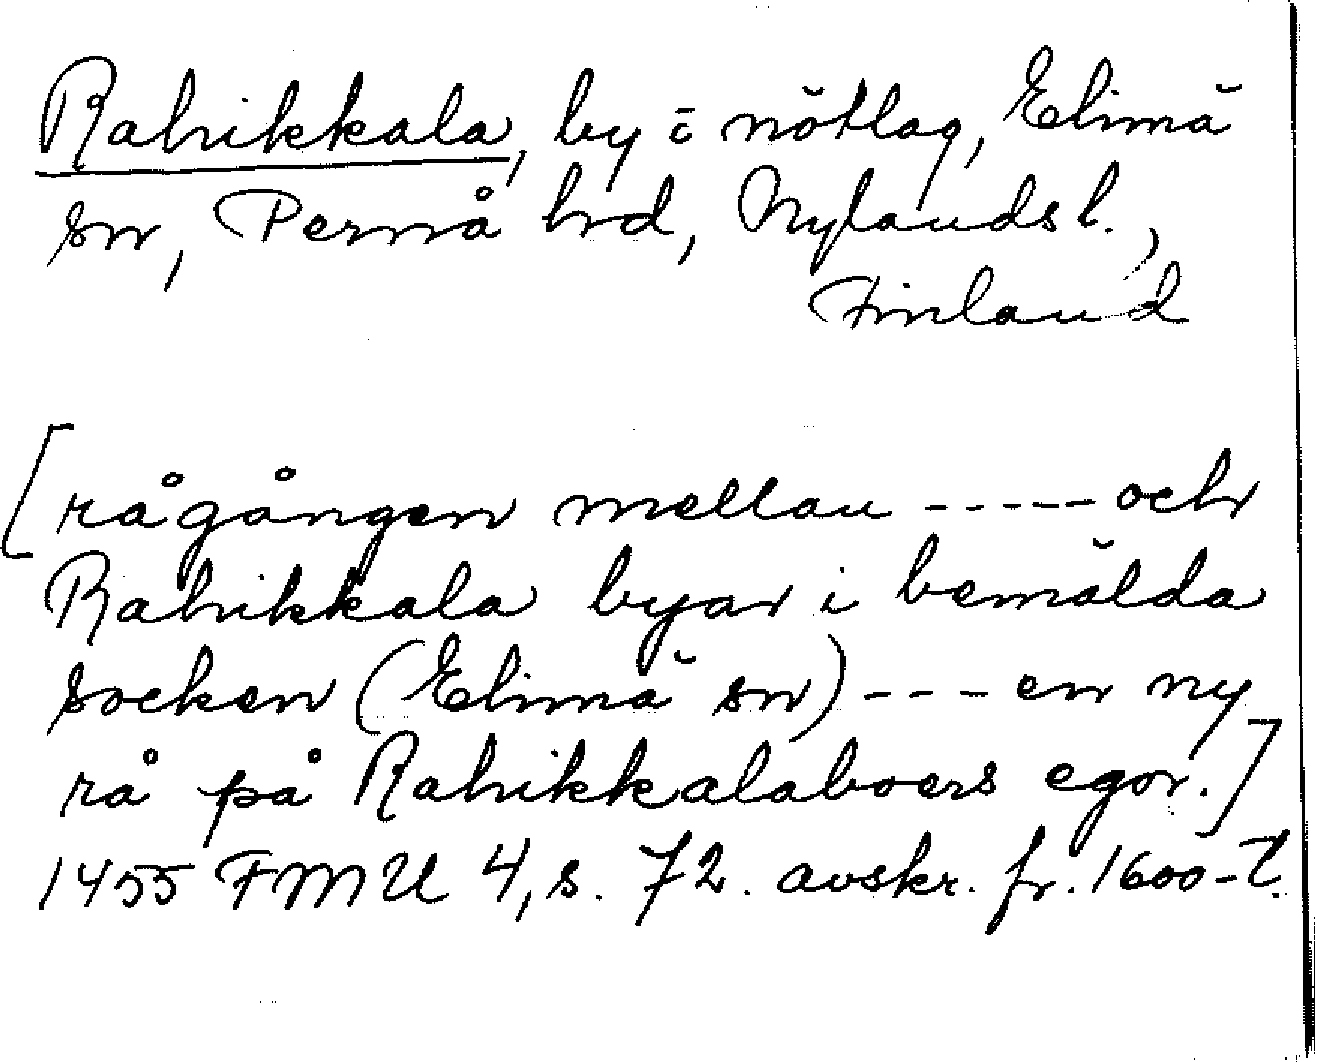 Rahikkala, by i nötlag, Elimä
sn, Pernå hrd, Nylands l.,
Finland
[rågången mellan ----- och
Rahikkala byar i bemälda
socken (Elimä sn) --- en ny
rå på Rahikkalaboers egor.]
1455 FMU 4, s. 72. avskr. fr. 1600-t.